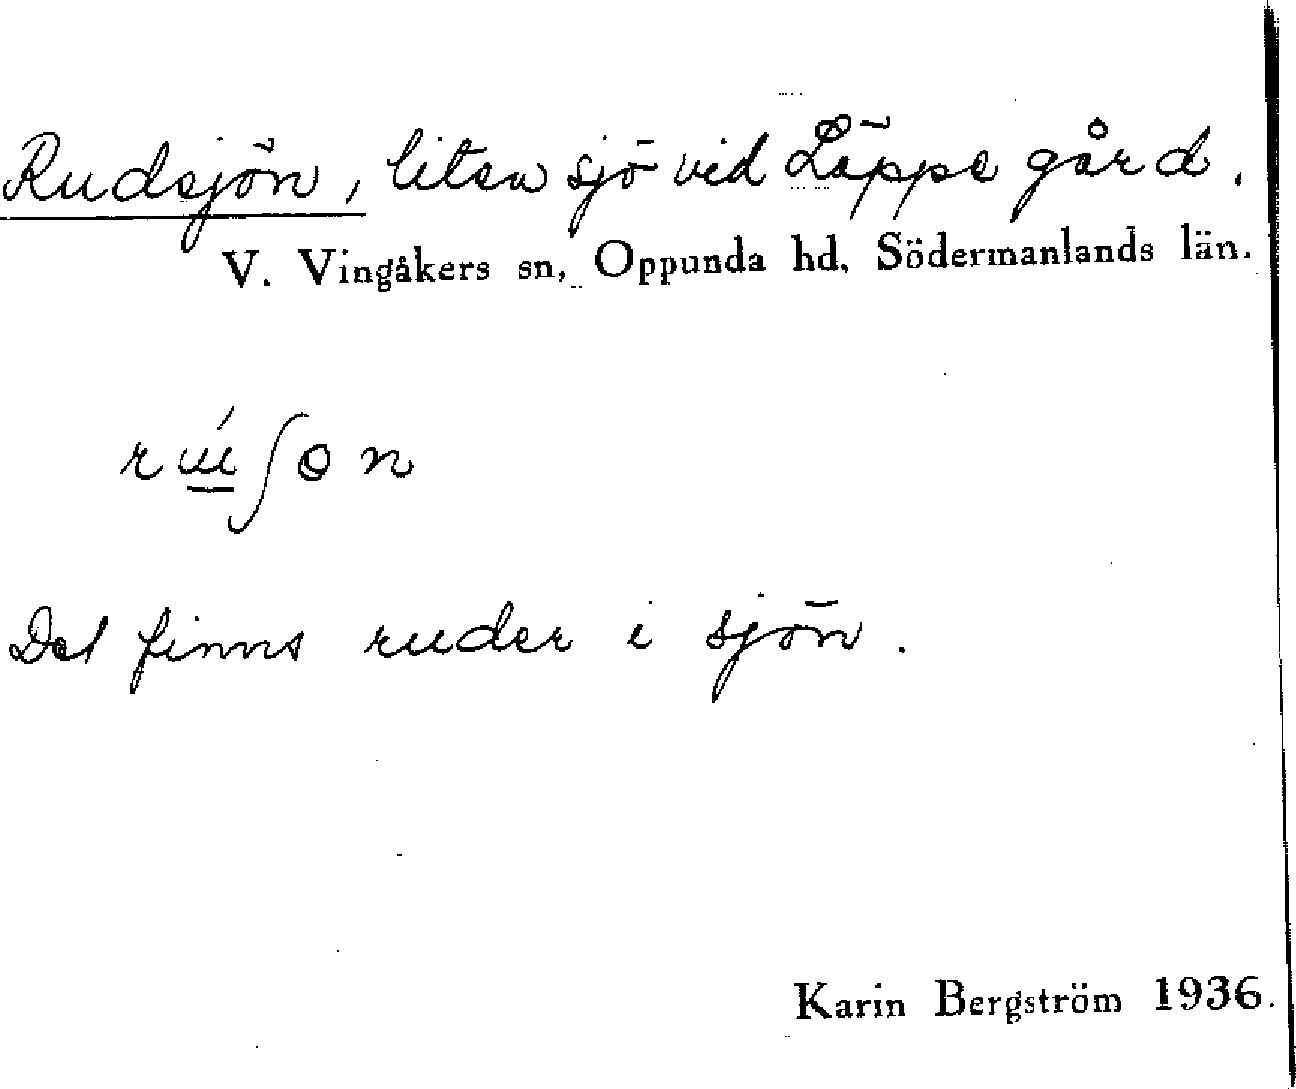 Rudsjön, liten sjö vid Läppe gård.
V. Vingåkers sn, Oppunda hd, Södermanlands län.
rú̱ʃɵn
Det finns ruder i sjön.
Karin Bergström 1936.